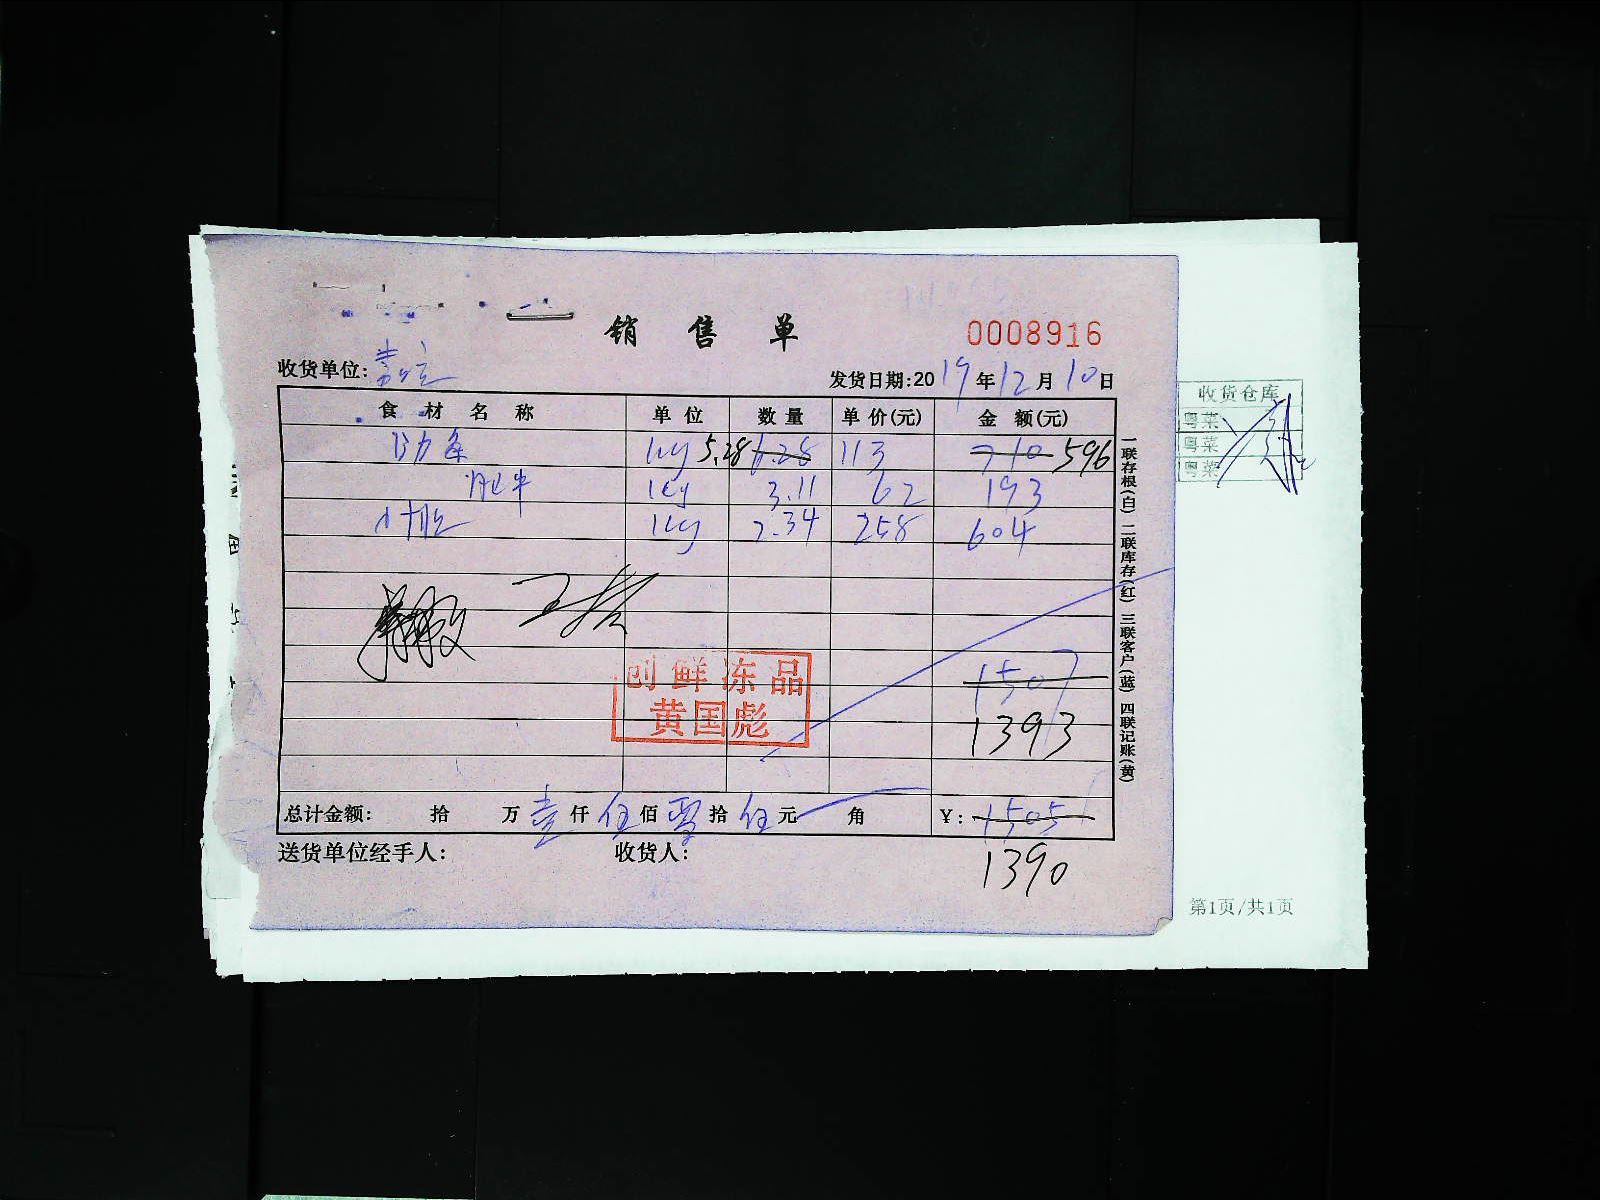 销售单
0008916
收货单位:
发货日期:2019年12月10日
食材名称 单位 数量 单价(元) 金额(元)
kg 5.28 6.28 113 710 596
肥牛 kg 3.11 62 193
kg 2.34 258 604
创鲜冻品
黄国彪
1507
1393
总计金额: 拾 万壹仟伍佰零拾伍元 角 ¥:1505
1390
送货单位经手人: 收货人:
一联存根(白) 二联库存(红) 三联客户(蓝) 四联记账(黄)
收货仓库
粤菜
粤菜
粤菜
第1页/共1页